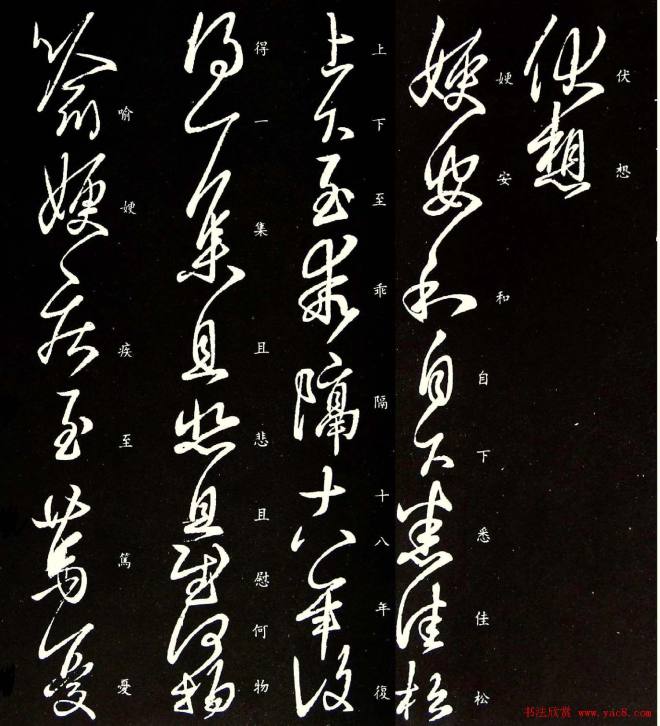 伏想
嫂安和自下悉佳松
上下至乖隔十八年復
得一集且悲且慰何物
喻嫂疾至篤憂
书法欣赏 www.yac8.com